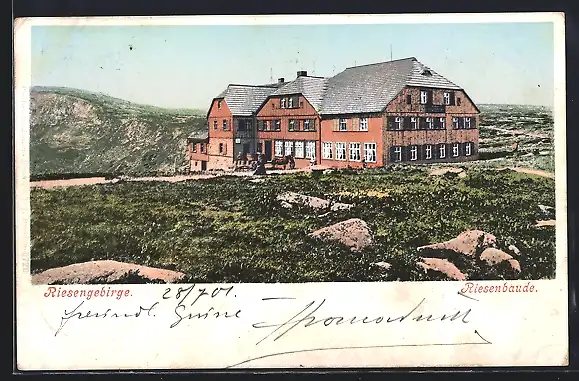 Riesengebirge. 28/7 01. Riesenbaude.
freundl. Grüße